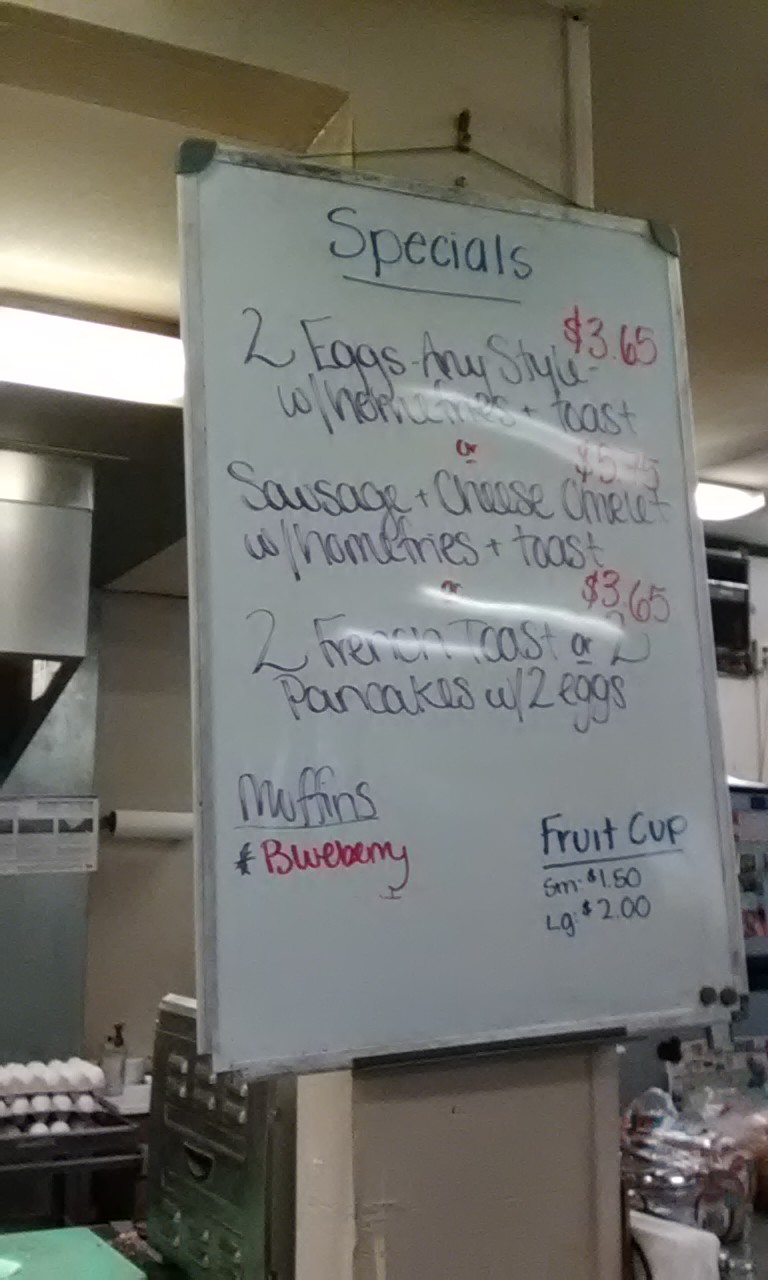 Specials
$3.65
2 Eggs-Any Style-
w/homefries + toast
or
$5.75
Sausage + Cheese Omelet
w/homefries + toast
or
$3.65
2 French Toast or 2
Pancakes w/2 eggs
Muffins
Blueberry
Fruit Cup
Sm: $1.50
Lg: $2.00